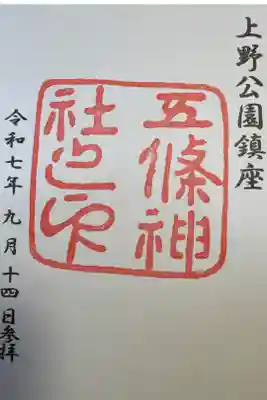 上野公園鎮座
五條神
社之印
令和七年 九月 十四日参拝